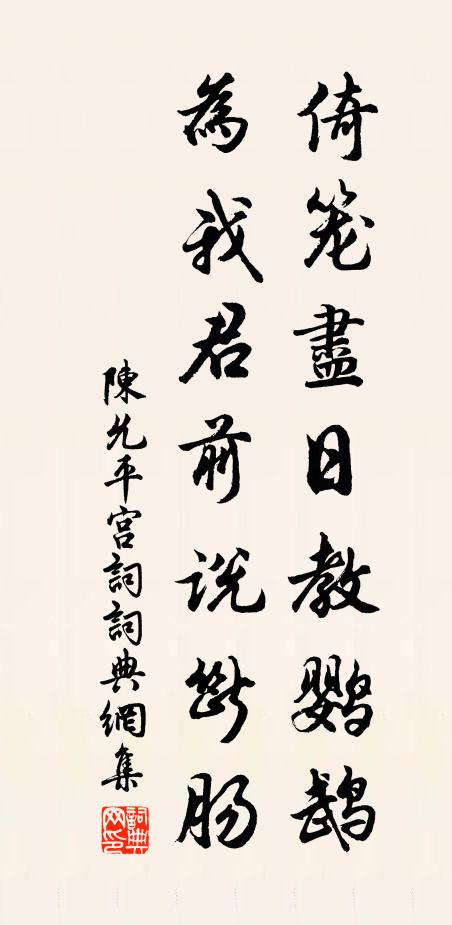 倚笼盡日教鹦鹉
為我君前说断肠
陳允平宫詞詞典網集
詞典网印